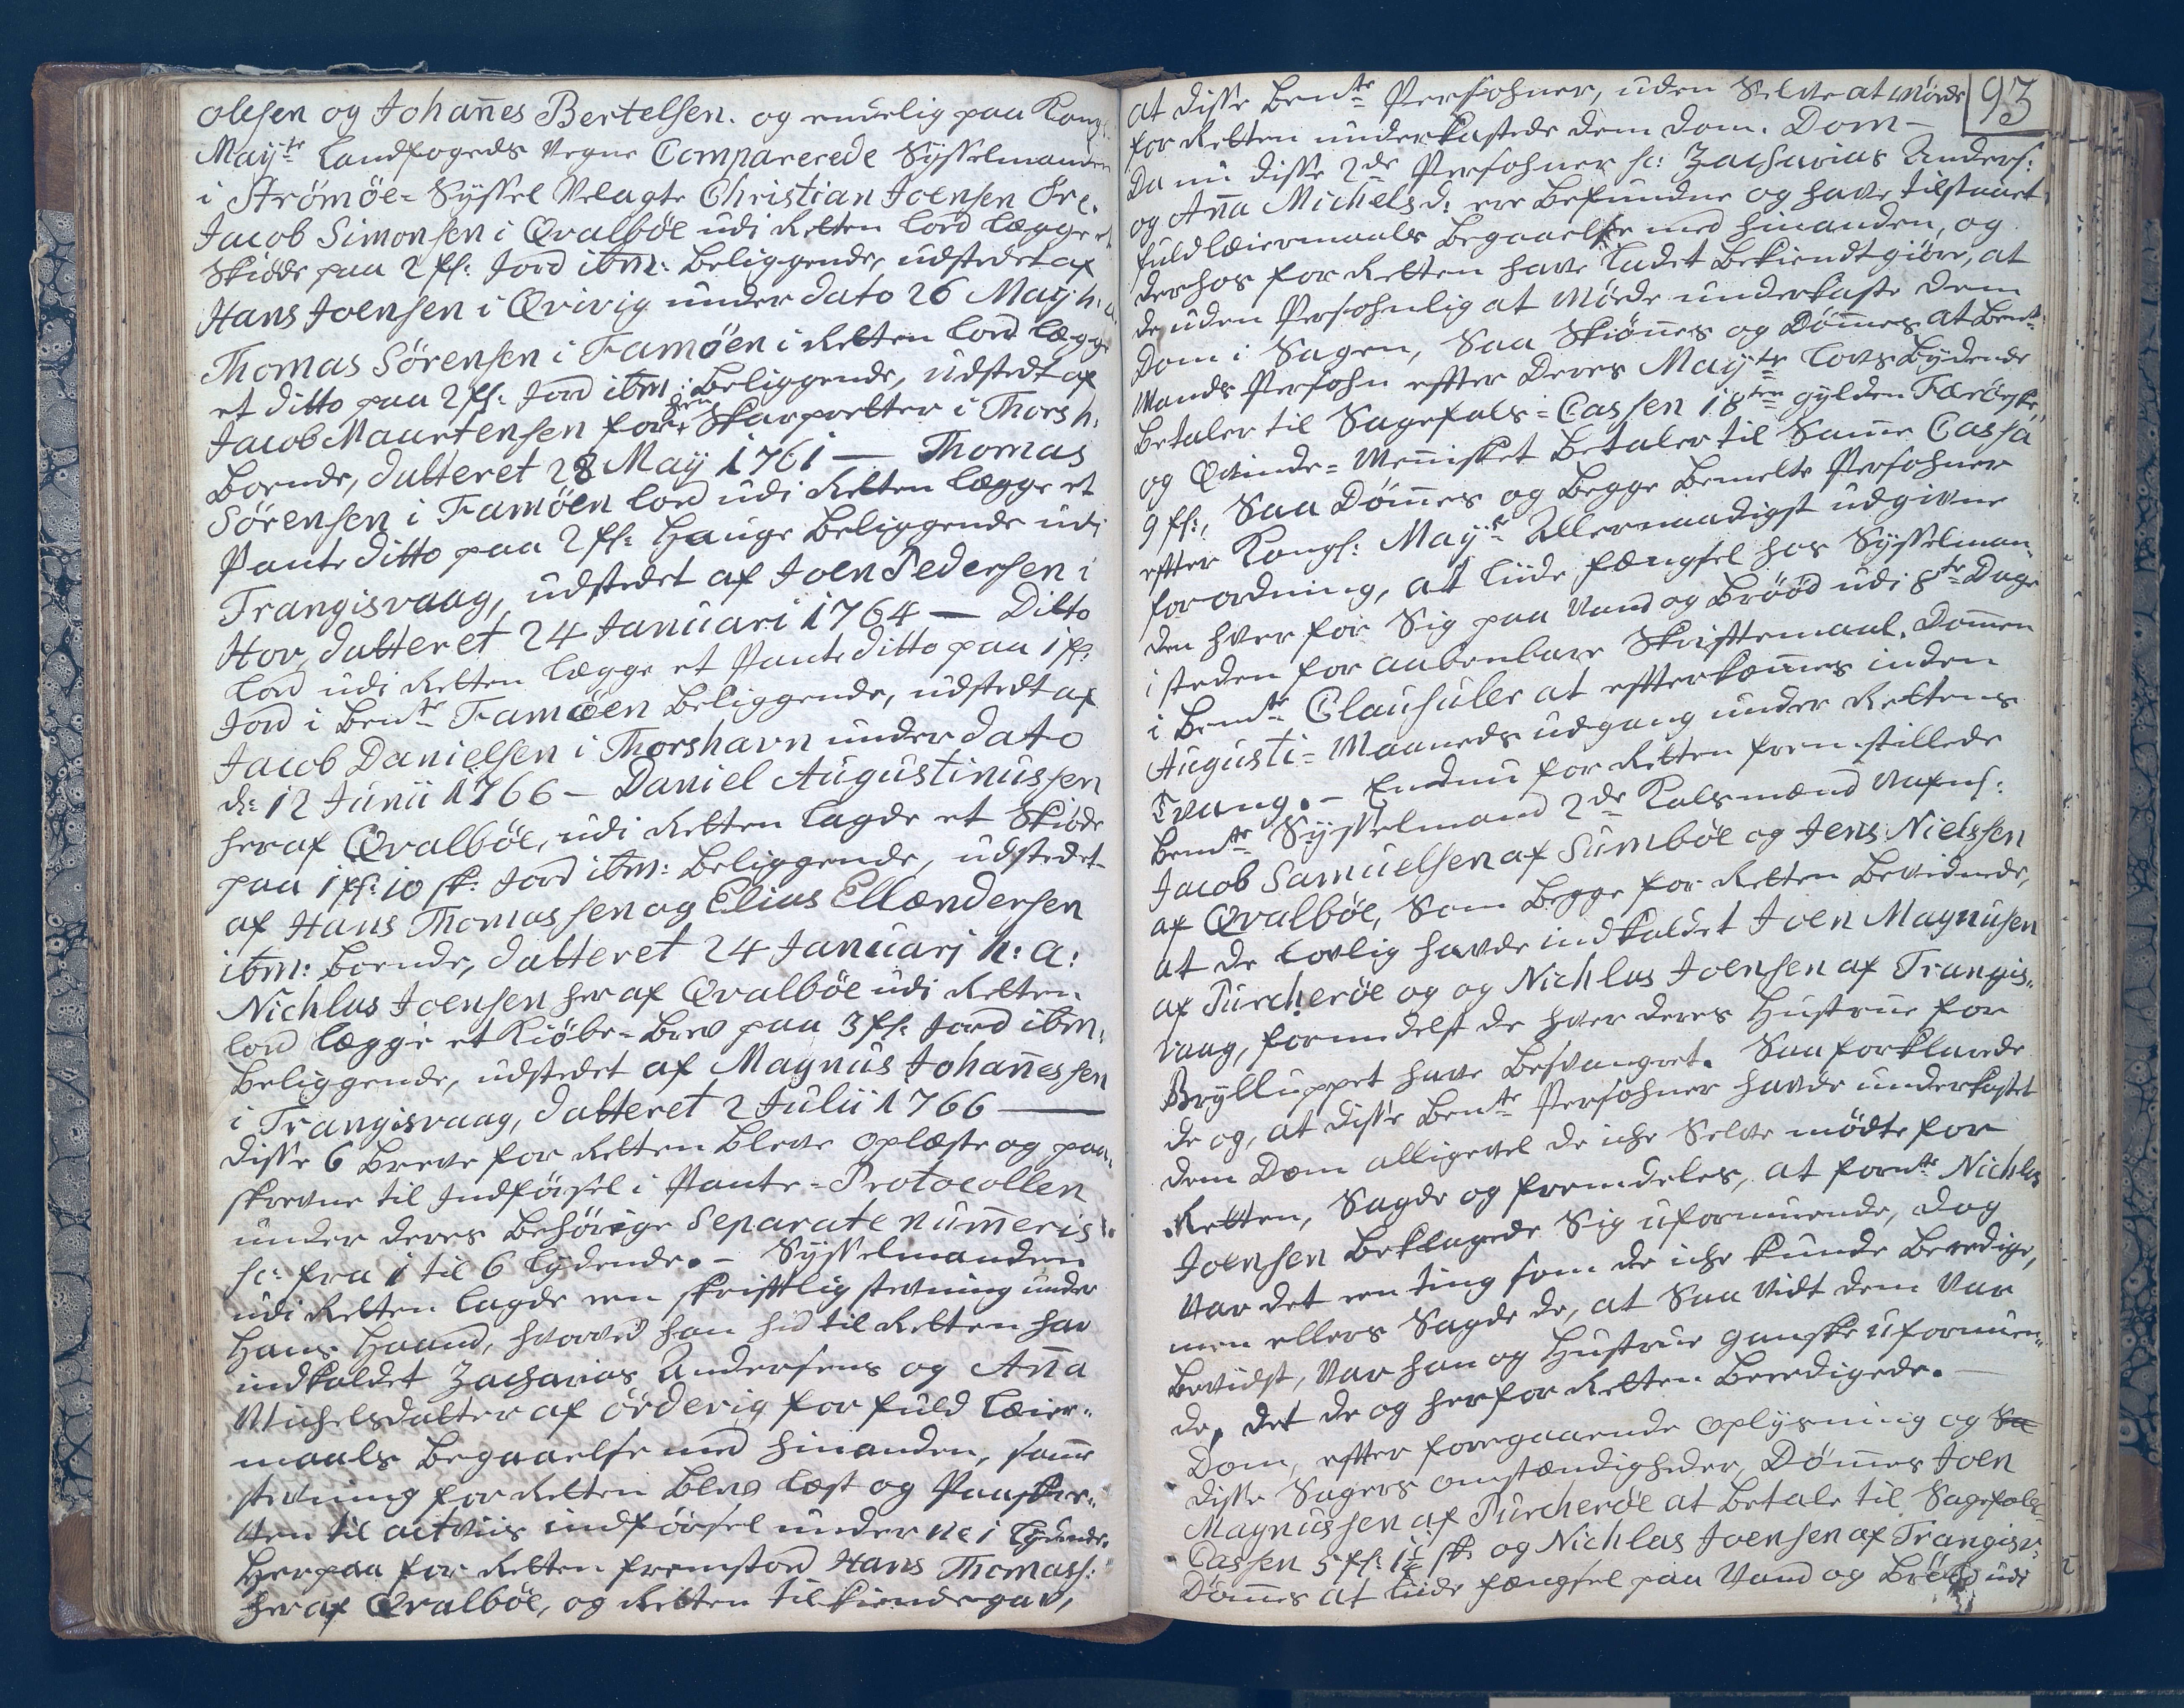 Olesen og Johan̄es Bertelsen. og endelig paa Kongl.
May:te Landfogeds Vegne Comparerede Sysselmanden
i Strömöe-Syssel Velagte Christian Joensen Öre.
Jacob Simonsen i Qvalböe udi Retten lod lægge et
Skiöde paa 2 fs: Jord ibm: beliggende, udstedet af
Hans Joensen i Qvivig under dato 26 May h: a:
Thomas Sörensen i Famöen i Retten lod lægge
et ditto paa 2 fs: Jord ibm: beliggende, udstedt af
Jacob Maartensen forhen Skarpretter i Thorsh:
boende, datteret 28 May 1761 — Thomas
Sörensen i Famöen lod udi Retten lægge et
Pante ditto paa 2 fs: Hauge beliggende udi
Trangisvaag, udstedet af Joen Pedersen i
Hov, datteret 24 Januari 1764 — Ditto
lod udi Retten lægge et Pante ditto paa 1 fs:
Jord i bem:te Famöen beliggende, udstedt af
Jacob Danielsen i Thorshavn under dato
d: 12 Junii 1766 — Daniel Augustinussen
her af Qvalböe, udi Retten lagde et Skiöde
paa 1 fs: 10 sk: Jord ibm: beliggende, udstedet
af Hans Thomassen og Elias Ellændersen
ibm: boende, datteret 24 Januarj h: a:
Nichlas Joensen her af Qvalböe udi Retten
lod lægge et Kiöbe-Brev paa 3 fs: Jord ibm:
beliggende, udstedet af Magnus Johan̄essen
i Trangisvaag, datteret 2 Julii 1766 —
disse 6 Breve for Retten bleve oplæste og paa-
skrevne til Indförsel i Pante-Protocollen
under deres behörige Separate num̄eris
sc: fra 1 til 6 lydende. — Sysselmanden
udi Retten lagde een skrifftlig stevning under
Hans Haand, hvorved han hid til Retten har
indkaldet Zacharias Andersens og An̄a
Michelsdatter af Örderig for fuld Leier-
maals begaaelse med hinanden, sam̄e
stevning for Retten blev læst og Paaskre-
ven til actviis indförsel under No 1 lydende.
Her paa for Retten fremstod Hans Thomass:
her af Qvalböe, og Retten tilkiendegav,
93
at disse bem:te Persohner, uden Selv at möde
for Retten underkastede dem dom. Dom —
Da nu disse 2de Persohner sc: Zacharias Anders:
og An̄a Michelsd: ere befundne og have tilstaaet
fuld leiermaals begaaelse med hinanden, og
derhos for Retten have ladet bekiendtgiöre, at
de uden Persohnlig at Möde underkaste dem
Dom i Sagen, Saa Skiön̄es og Döm̄es at bem:te
Mands Persohn efter Deres May:ts lovs bydende
betaler til Sagefals-Cassen 18ten gylden Færöiske,
og Qvinde-Men̄isket betaler til Sam̄e Cassa
9 fs:, Saa Döm̄es og begge bemelte Persohner
efter Kongl: May:ts Allernaadigst udgivne
forordning, at liide fængsel hos Sysselman-
den hver for Sig paa Vand og bröd udi 8te Dage
i steden for aabenbare Skriftemaal. Dom̄en
i bem:te Clausuler at efterkom̄es inden
Augusti-Maaneds udgang under Rettens
Tvang. — Endnu for Retten fremstillede
bem:te Sysselmand 2de Kalsmænd Nafnl:
Jacob Samuelsen af Sumböe og Jens Nielssen
af Qvalböe, Som begge for Retten bevidnede,
at de lovlig havde indkaldet Joen Magnusen
af Purcheröe og og Nichlas Joensen af Trangis-
vaag, formedelst de hver deres Hustrue for
Brylluppet have besvangret. Saa forklarede
de og, at disse bem:te Persohner havde underkastet
dem Dom alligevel de iche Selv mödte for
Retten, Sagde og fremdeles, at forn:te Nichlas
Joensen beklagede Sig uformuende, dog
var det een ting som de iche kunde beedige,
men ellers Sagde de, at Saa vidt dem var
bevidst, var han og Hustrue ganske uformuen-
de, det de og her for Retten beeedigede. —
Dom, efter foregaaende oplysning og
disse Sagers omstændigheder, Döm̄es Joen
Magnussen af Purcheröe at betale til Sagefals-
Cassen 5 fs: 1½ sk: og Nichlas Joensen af Trangisv:
Döm̄es at liide fængsel paa Vand og Bröd udi